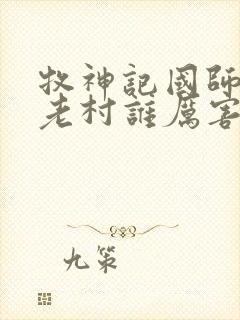 牧神記國師
老村誰厲害
九策